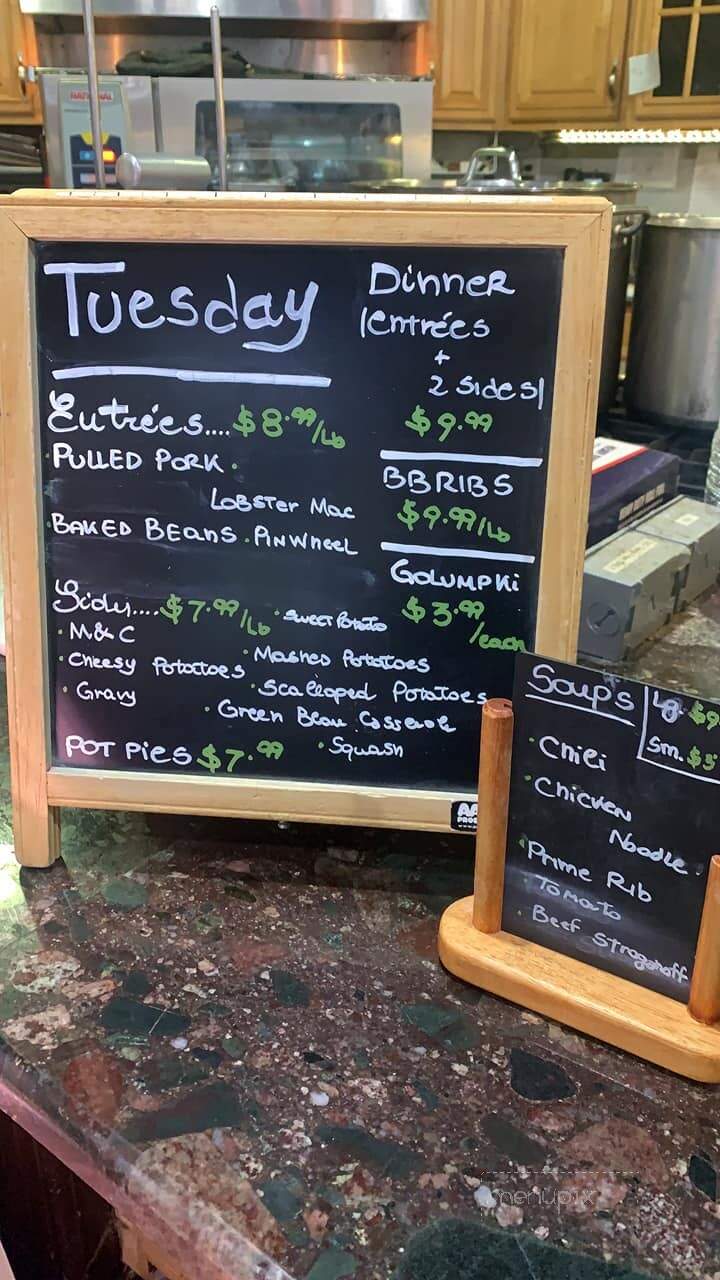 NATIONAL
Tuesday
Entrées.... $8.99/Lb
• PULLED PORK •
LOBSTER MAC
• BAKED BEANS • PINWHEEL
Sides.... $7.99/Lb
• SWEET Potato
• M&C
• Mashed Potatoes
• Cheesy Potatoes
• Scalloped Potatoes
• Gravy
• Green Bean Casserole
• Squash
POT PIES $7.99
DINNER
(entrées
+
2 sides)
$9.99
BBRIBS
$9.99/Lb
GOLUMPKI
$3.99
/each
Soup's
Lg. $9
Sm. $5
• Chili
• Chicken
Noodle •
• Prime Rib
• Tomato
• Beef Stroganoff
menupix